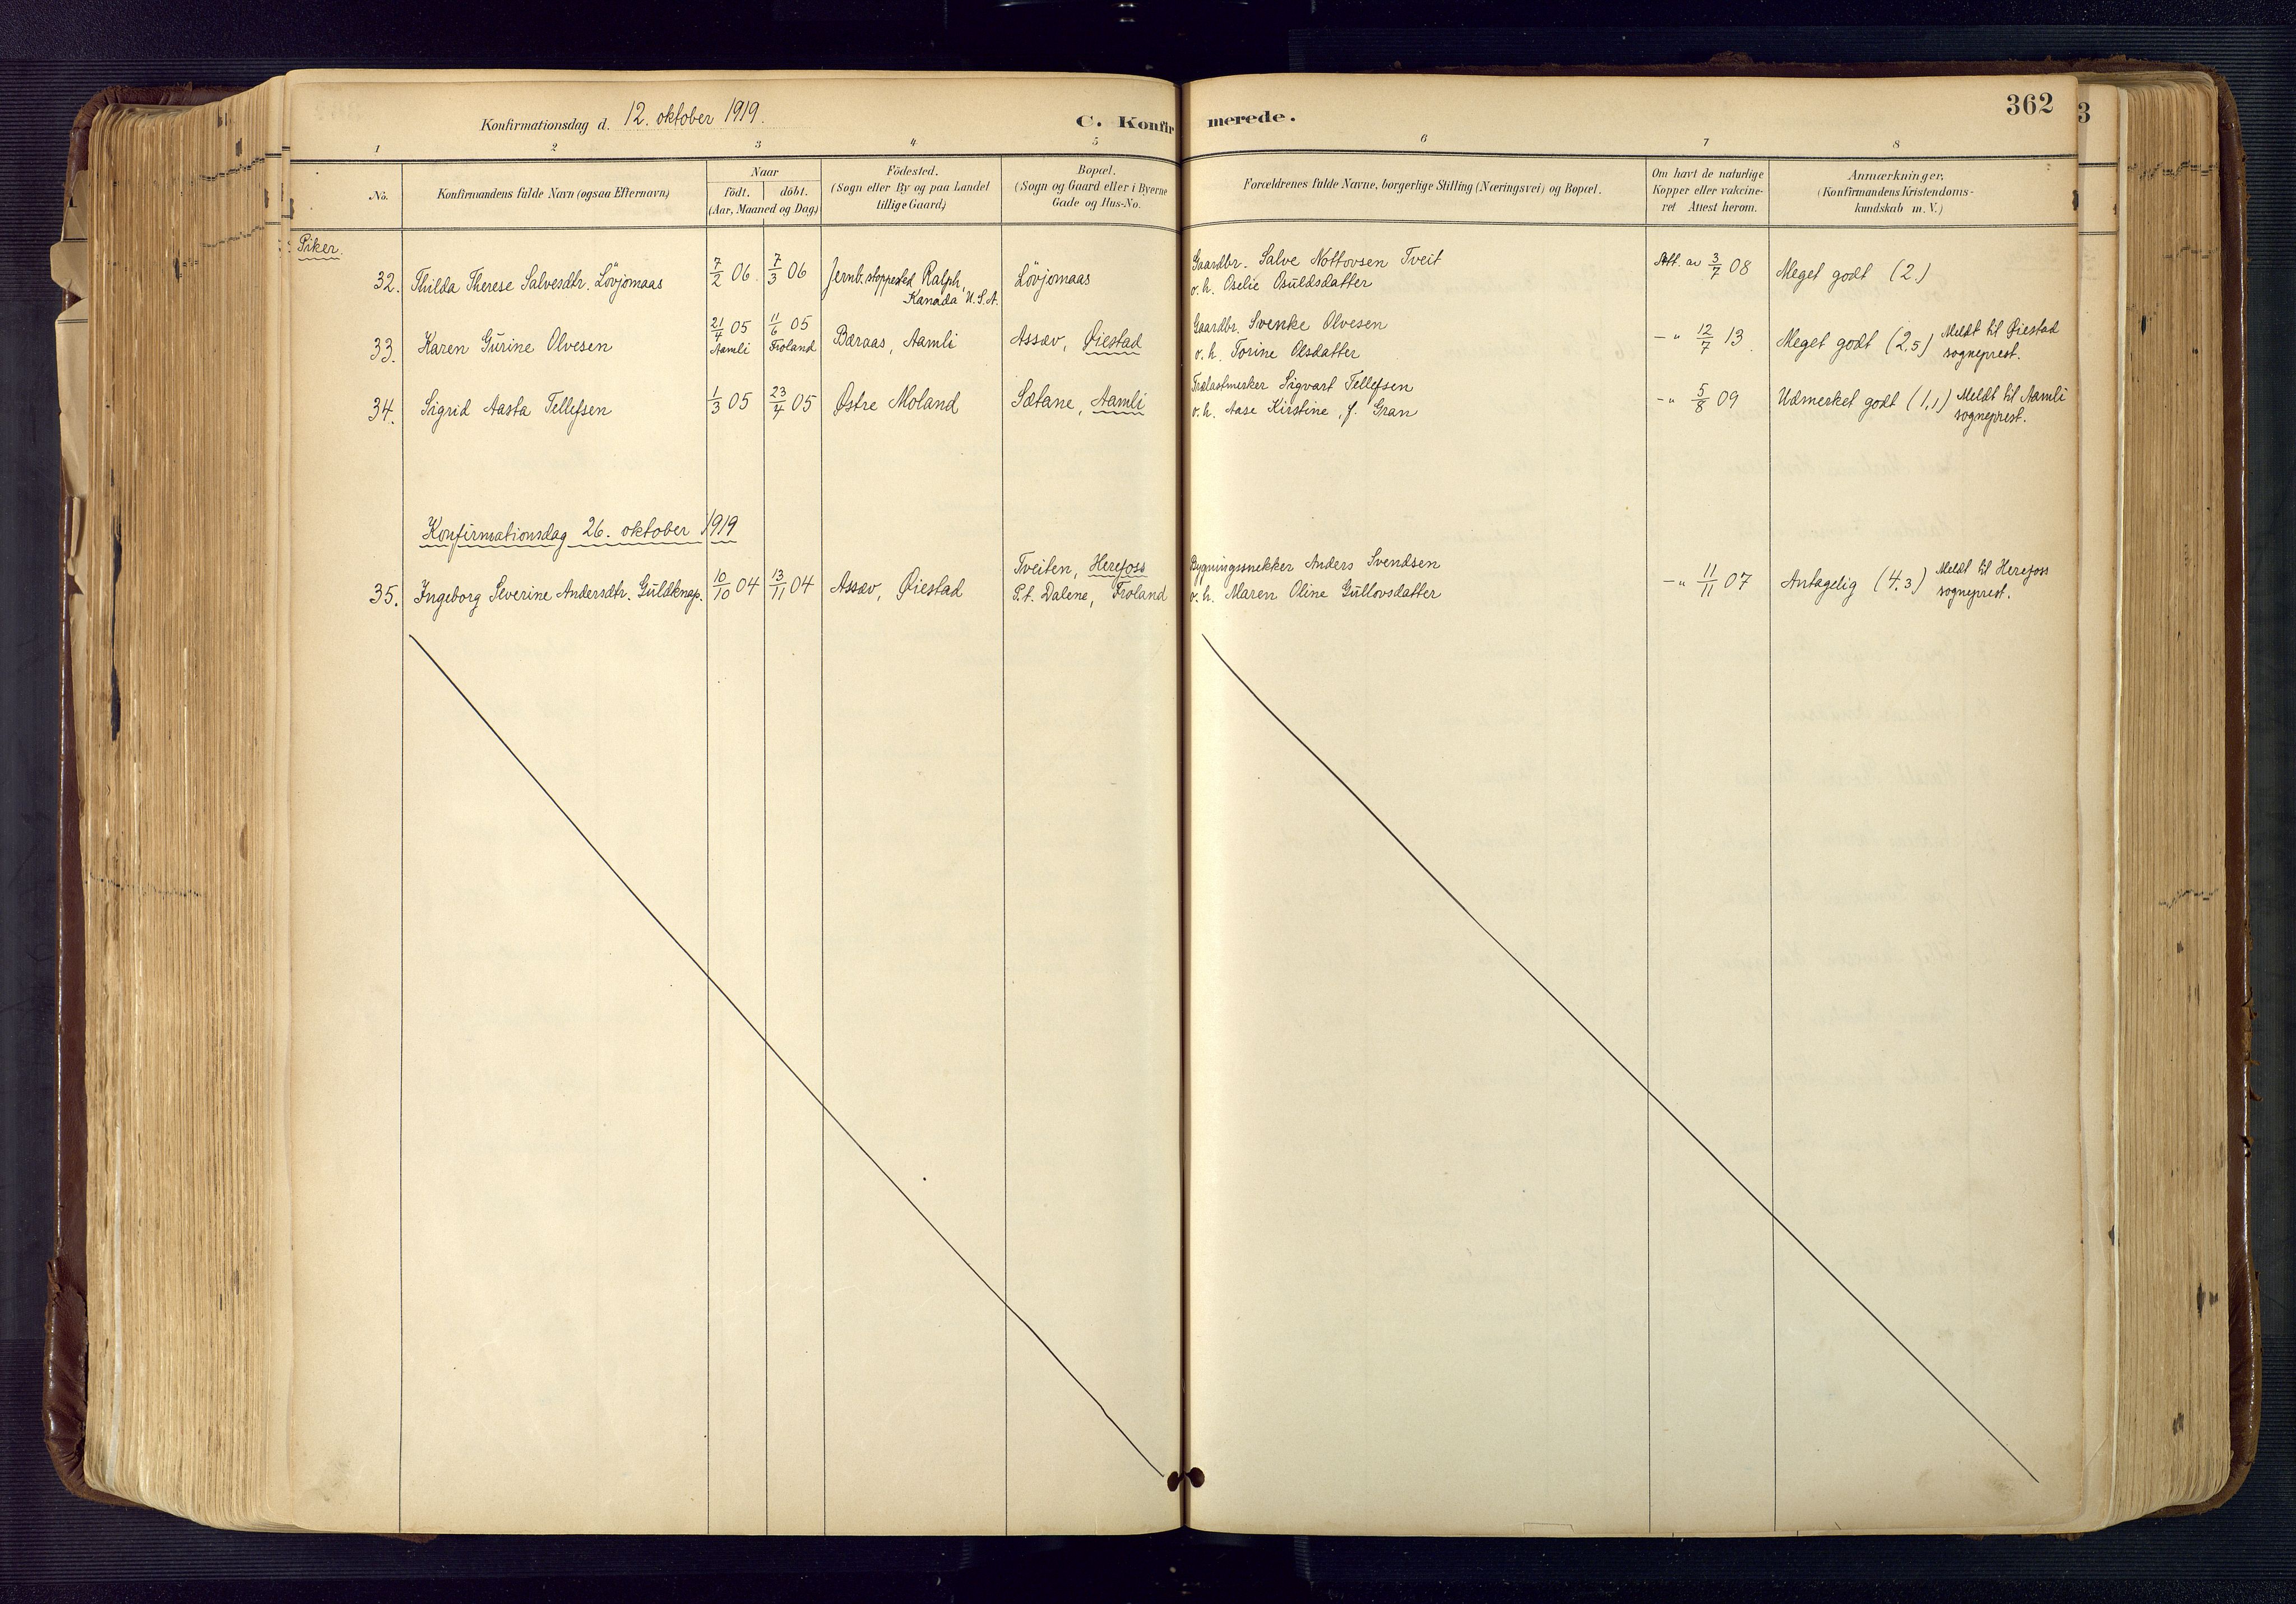 Konfirmationsdag d. 12. oktober 1919.
C. Konfirmerede.
362
1 2 3 4 5 6 7 8
No.
Konfirmandens fulde Navn (ogsaa Efternavn)
Naar
födt. döbt.
(Aar, Maaned og Dag)
Födested.
(Sogn eller By og paa Landet
tillige Gaard)
Bopæl.
(Sogn og Gaard eller i Byerne
Gade og Hus-No.
Forældrenes fulde Navne, borgerlige Stilling (Næringsvei) og Bopæl.
Om havt de naturlige
Kopper eller vakcine-
ret Attest herom.
Anmærkninger.
(Konfirmandens Kristendoms-
kundskab m. V.)
Piker.
32. Thilda Therese Salvesdtr. Lövjomaas 7/2 06 7/3 06 Jernb. stoppested Ralph, Kanada U.S.A. Lövjomaas Gaardbr. Salve Nottovsen Tveit
o. h. Oselie Osuldsdatter Att. av 3/7 08 Meget godt (2.)
33. Karen Gurine Olvesen 21/4 05 Aamli 11/6 05 Froland Bæraas, Aamli Assæv, Øiestad Gaardbr. Svenke Olvesen
o. h. Torine Olsdatter -"- 12/7 13 Meget godt (2,5) Meldt til Øiestad
sogneprest.
34. Sigrid Aasta Tellefsen 1/3 05 23/4 05 Østre Moland Sætane, Aamli Trælastmerker Sigvart Tellefsen
o. h. Aase Kirstine, f. Gran -"- 5/8 09 Udmerket godt (1,1) Meldt til Aamli
sogneprest.
Konfirmationsdag 26. oktober 1919
35. Ingeborg Severine Andersdtr. Guldknap. 10/10 04 13/11 04 Assæv, Øiestad Tveiten, Herefoss
P.t. Dalene, Froland Bygningssnekker Anders Svendsen
o. h. Maren Oline Gullovsdatter -"- 11/11 07 Antagelig (4,3) Meldt til Herefoss
sogneprest.
3